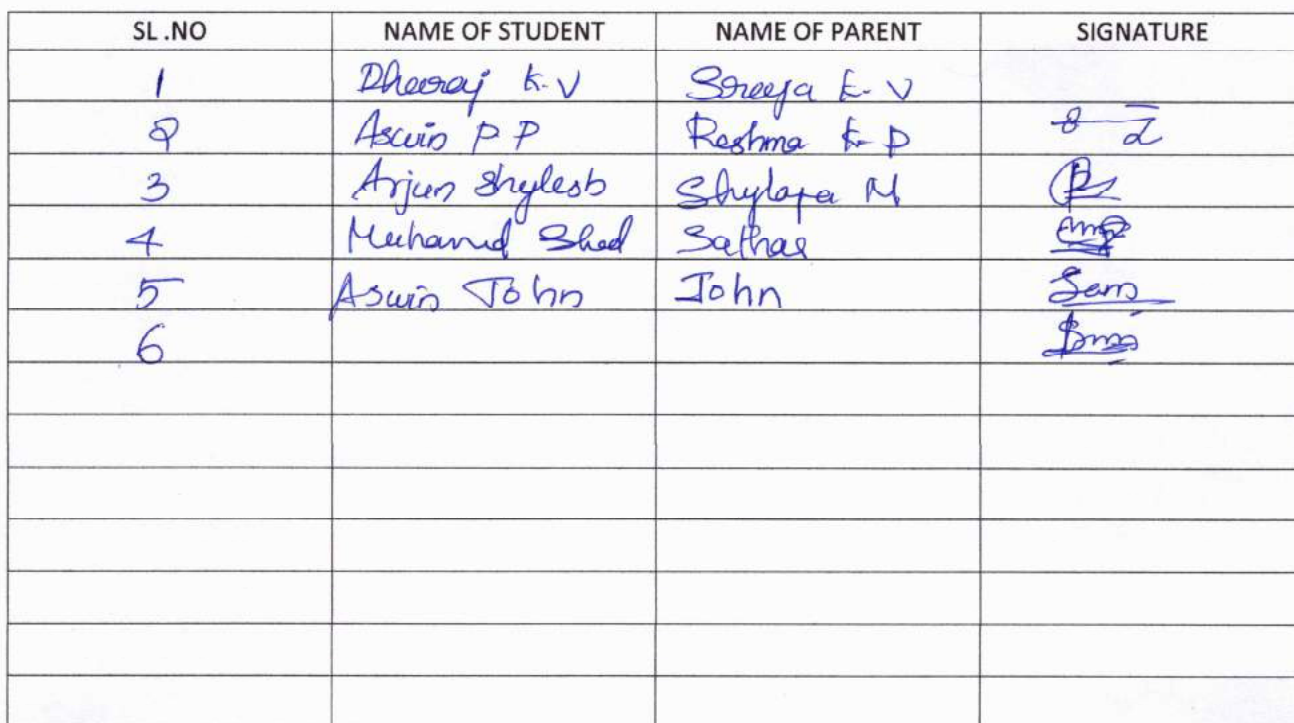 SL .NO NAME OF STUDENT NAME OF PARENT SIGNATURE
1 Dheeraj K.V Sreeja K.V
2 Aswin P P Reshma K.P
3 Arjun Shylesh Shylaja M
4 Muhamed Shad Sathar
5 Aswin John John
6